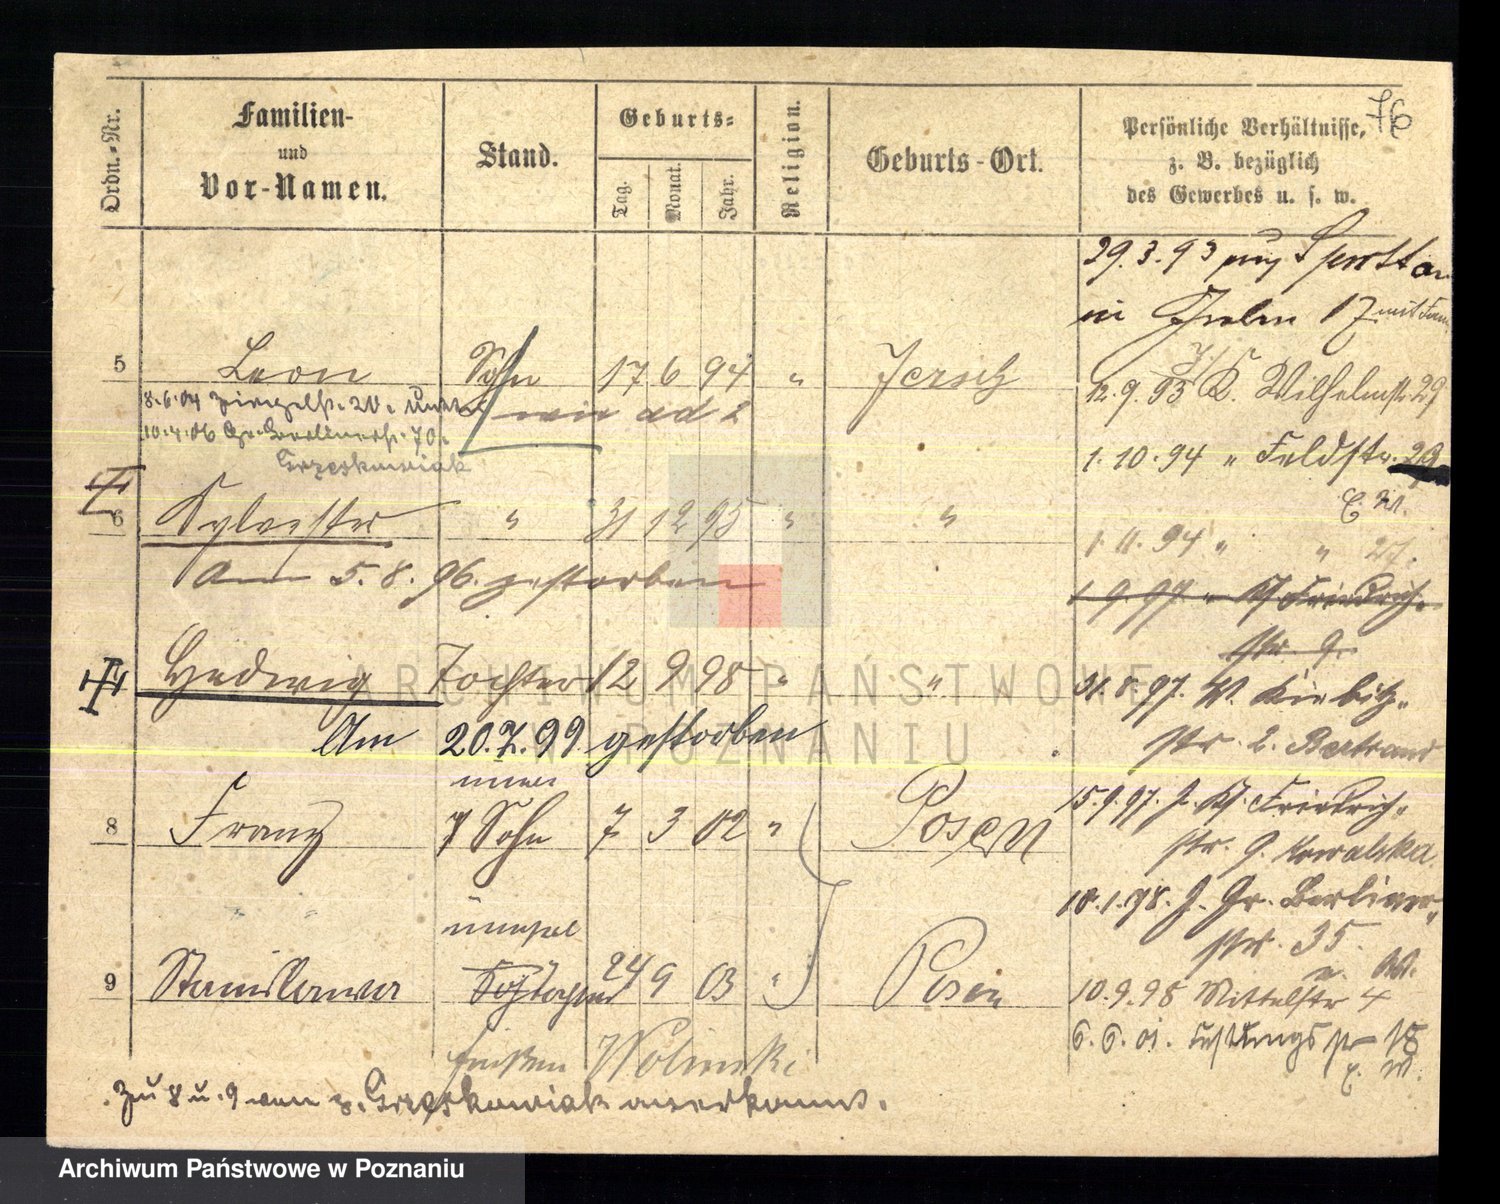 76
Ordn.-Nr.
Familien-
und
Vor-Namen.
Stand.
Geburts-
Tag.
Monat.
Jahr.
Religion.
Geburts-Ort.
Persönliche Verhältnisse,
z. B. bezüglich
des Gewerbes u. s. w.
29.3.93
in 17 mit Fam
5 Leon Sohn 17 6 94 " Jersitz
12.9.93 K. Wilhelmstr. 29
8.6.04 20.
wie ad 2
10.4.06 Gr. Berlinerstr. 70
Grzeskowiak
1.10.94 " Feldstr. 29
6 Sylvester " 31 12 95 " "
1.11.94 " " 27.
Am 5.8.96. gestorben
1.9.97. Friedrich-
str. 9.
Hedwig Tochter 12 9 98 " "
31.8.97. W. Kiebitz-
Am 20.7.99 gestorben
str. 2. Bertrand
15.9.97. J. Friedrich-
8 Franz Sohn 7 3 02 " Posen
str. 9. Kowalska.
10.1.98. J. Gr. Berliner-
str. 35.
unehel
9 Stanislawa Tochter 24 9 03 " Posen
10.9.98 Mittelstr 4
6.6.01. Festungsstr 18
heißen Wolinski
zu 8 u. 9 von p. Grzeskowiak anerkannt.
ARCHIWUM PAŃSTWOWE
W POZNANIU
Archiwum Państwowe w Poznaniu